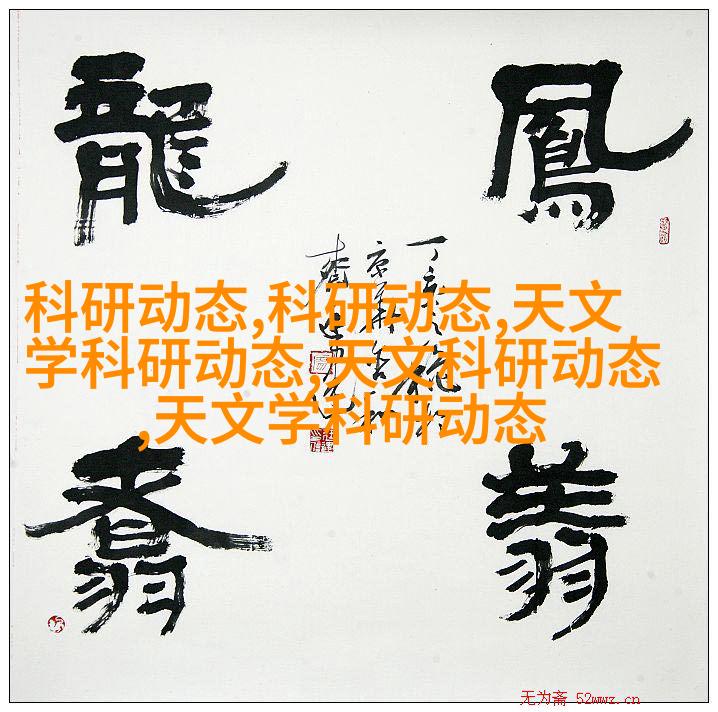 鳳翔
龍翥
科研动态,科研动态,天文
学科研动态,天文科研动态
,天文学科研动态
无为斋 52wwz.cn